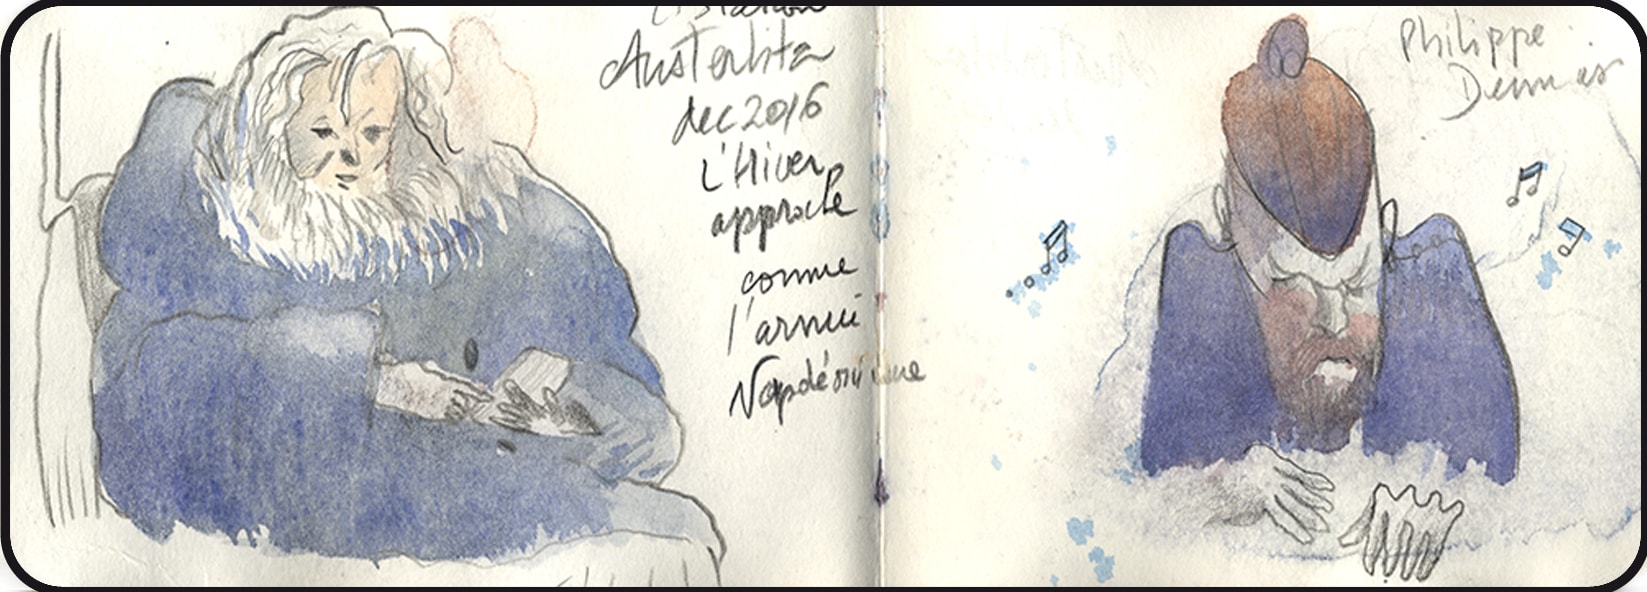 Austerlitz
dec 2016
L'Hiver
approche
comme
l'armée
Napoléonienne
Philippe